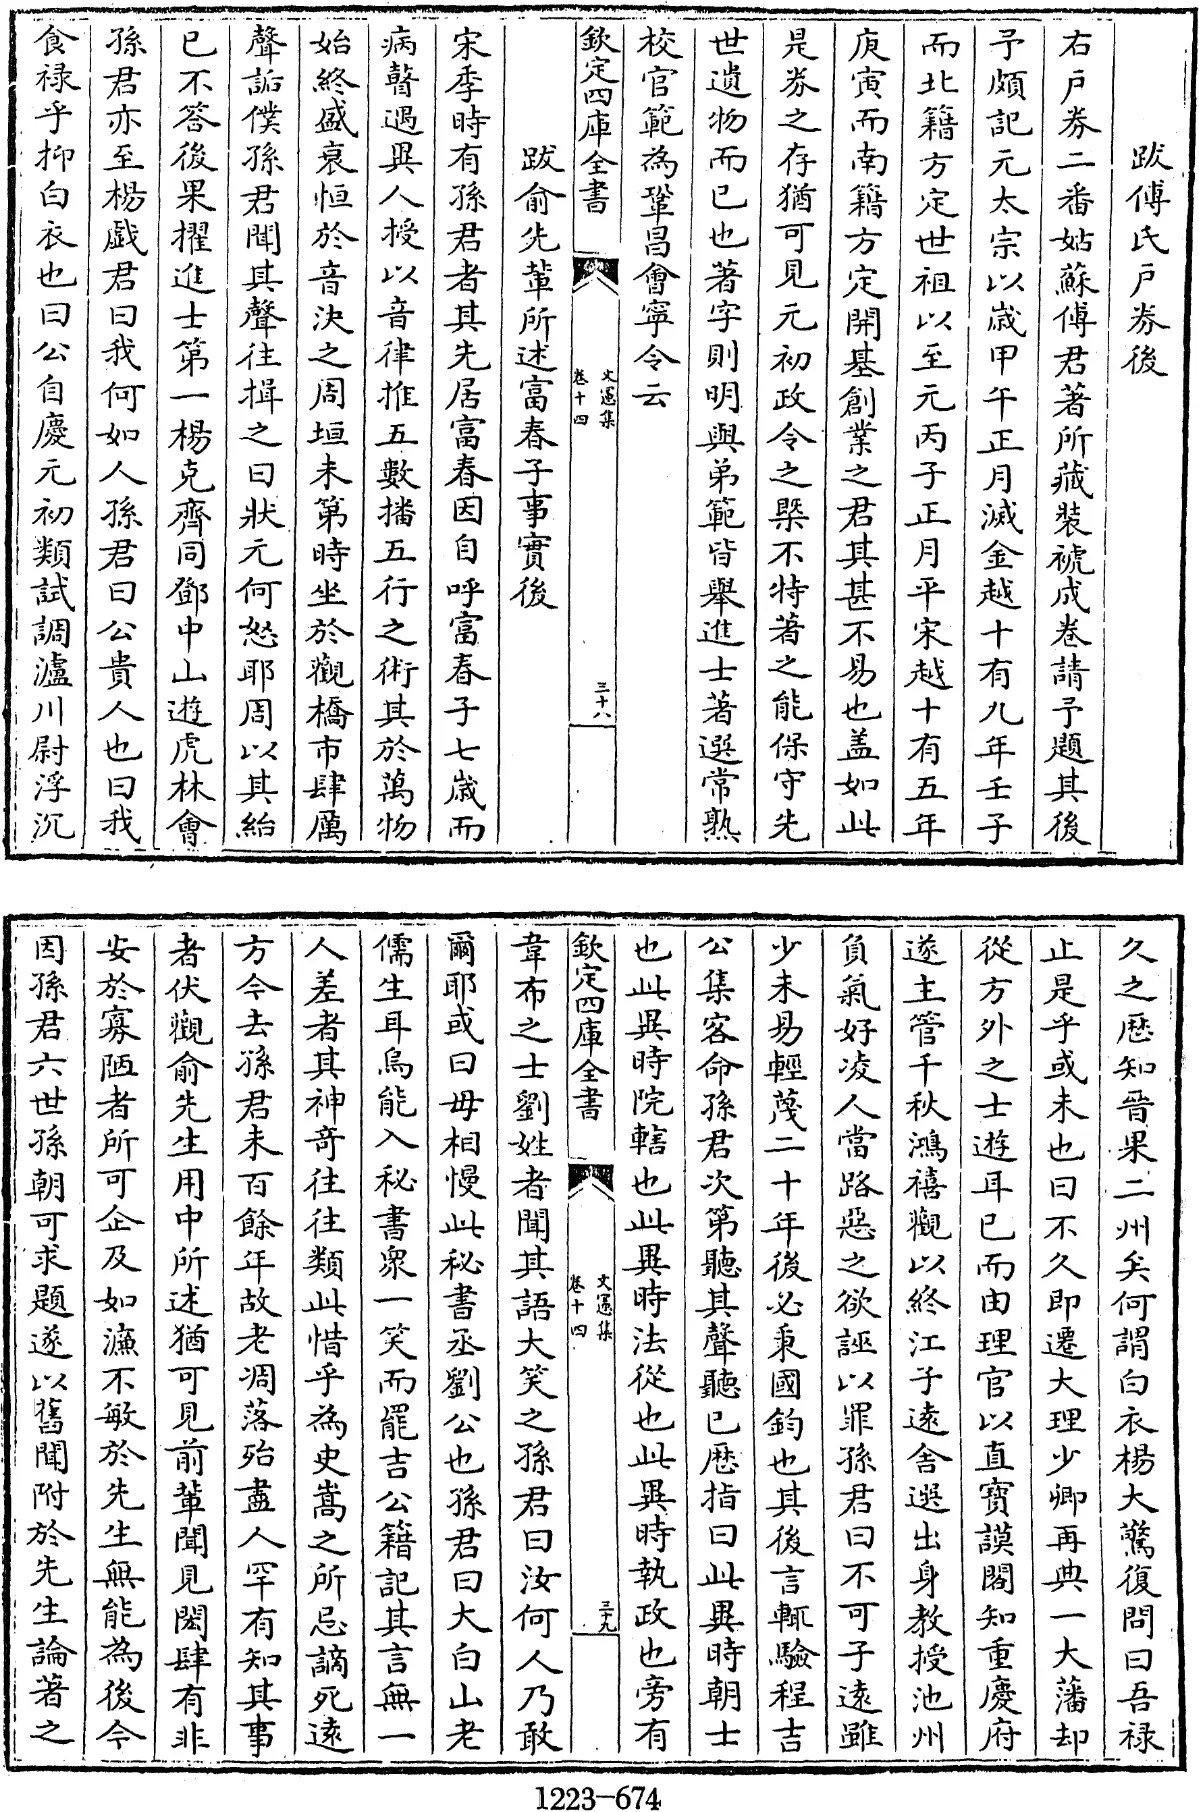 跋傅氏戶券後
右戶券二番姑蘇傅君著所藏裝褫成卷請予題其後
予頗記元太宗以歲甲午正月滅金越十有九年壬子
而北籍方定世祖以至元丙子正月平宋越十有五年
庚寅而南籍方定開基創業之君其甚不易也蓋如此
是券之存猶可見元初政令之槩不特著之能保守先
世遺物而已也著字則明與弟範皆舉進士著選常熟
校官範為鞏昌會寧令云
欽定四庫全書
文憲集
卷十四
三十八
跋俞先輩所述富春子事實後
宋季時有孫君者其先居富春因自呼富春子七歲而
病瞽遇異人授以音律推五數播五行之術其於萬物
始終盛衰恒於音決之周垣未第時坐於觀橋市肆厲
聲詬僕孫君聞其聲往揖之曰狀元何怒耶周以其紿
已不答後果擢進士第一楊克齊同鄧中山遊虎林會
孫君亦至楊戲君曰我何如人孫君曰公貴人也曰我
食禄乎抑白衣也曰公自慶元初類試調瀘川尉浮沉
久之歷知晉果二州矣何謂白衣楊大驚復問曰吾禄
止是乎或未也曰不久即遷大理少卿再典一大藩却
從方外之士遊耳已而由理官以直寶謨閣知重慶府
遂主管千秋鴻禧觀以終江子遠舍選出身教授池州
負氣好凌人當路惡之欲誣以罪孫君曰不可子遠雖
少未易輕蔑二十年後必秉國鈞也其後言輒驗程吉
公集客命孫君次第聽其聲聽已歷指曰此異時朝士
也此異時院轄也此異時法從也此異時執政也旁有
欽定四庫全書
文憲集
卷十四
三十九
韋布之士劉姓者聞其語大笑之孫君曰汝何人乃敢
爾耶或曰毋相慢此秘書丞劉公也孫君曰大白山老
儒生耳烏能入秘書衆一笑而罷吉公籍記其言無一
人差者其神奇往往類此惜乎為史嵩之所忌謫死遠
方今去孫君未百餘年故老凋落殆盡人罕有知其事
者伏觀俞先生用中所述猶可見前輩聞見閎肆有非
安於寡陋者所可企及如濂不敏於先生無能為後今
因孫君六世孫朝可求題遂以舊聞附於先生論著之
1223-674